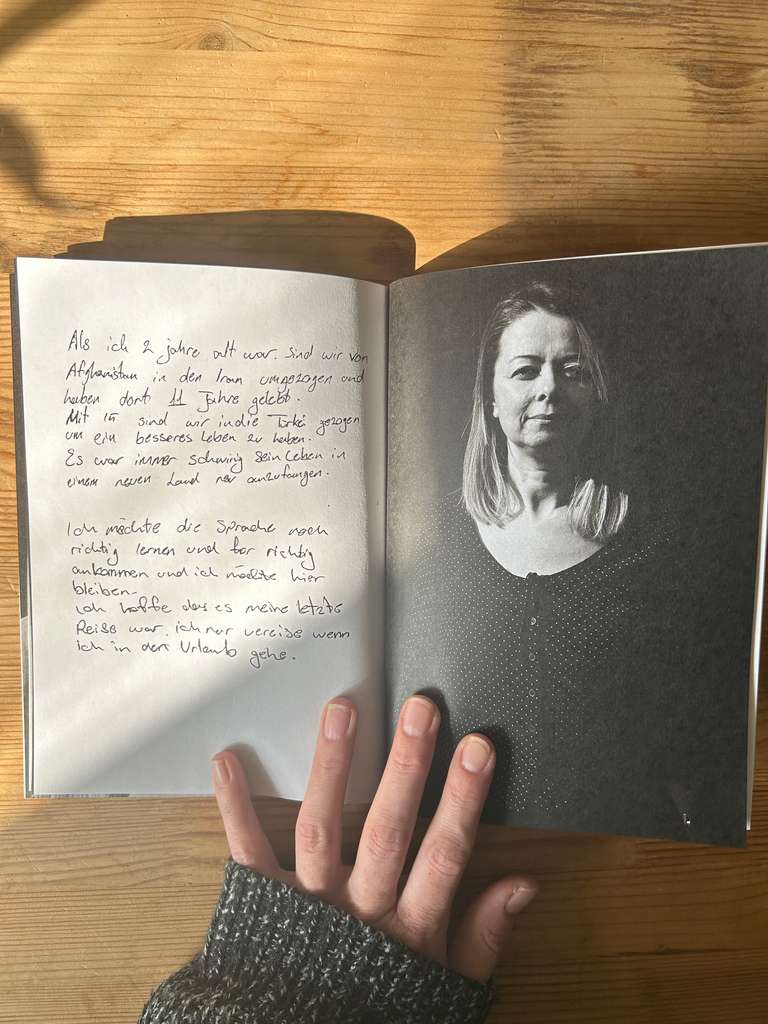 Als ich 2 jahre alt war. sind wir von
Afghanistan in den Iran umgezogen und
haben dort 11 Jahre gelebt.
Mit 15 sind wir in die Türkei gezogen
um ein besseres Leben zu haben.
Es war immer schwirig sein Leben in
einem neuen Land neu anzufangen.
Ich möchte die Sprache noch
richtig lernen und for richtig
ankommen und ich möchte hier
bleiben.
ich hoffe das es meine letzte
Reise war. ich nur vereise wenn
ich in den Urlaub gehe.